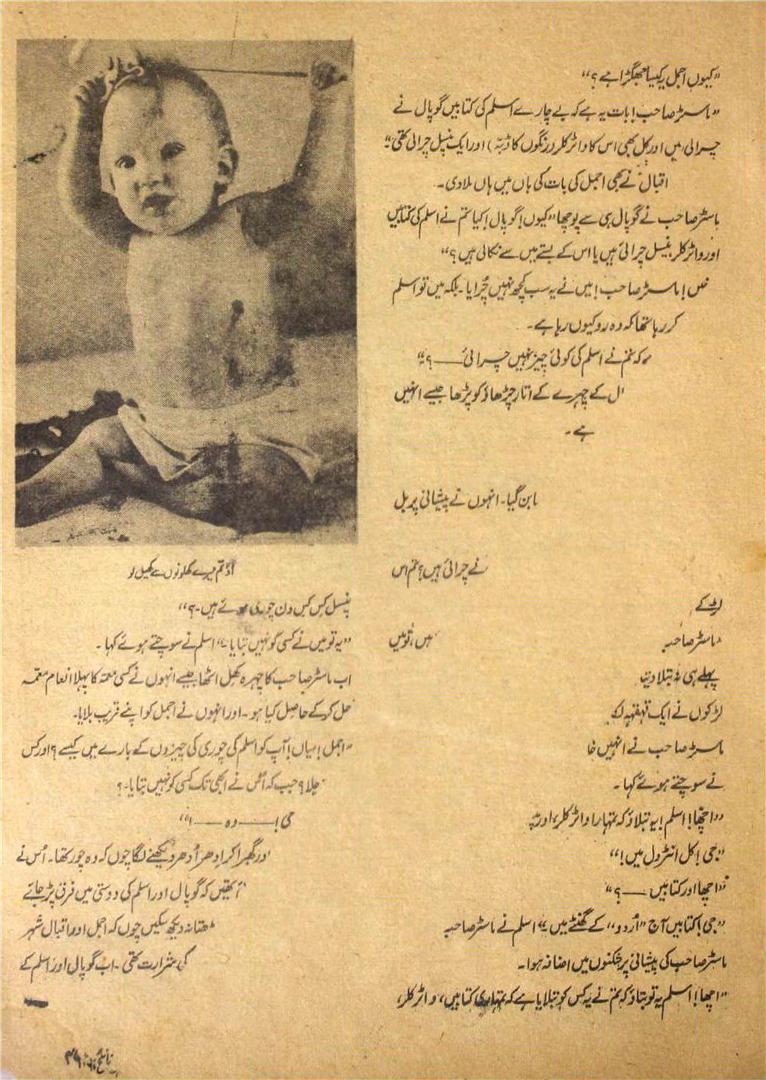 ”کیوں اجمل یہ کیسا جھگڑا ہے؟“
”ماسٹر صاحب! بات یہ ہے کہ بے چارے اسلم کی کتابیں گوپال نے
چرالی ہیں اور کل بھی اس کا واٹر کلر (رنگوں کا ڈبہ) اور ایک پنسل چرالی تھی“
اقبال نے بھی اجمل کی بات کی ہاں میں ہاں ملادی۔
ماسٹر صاحب نے گوپال ہی سے پوچھا ”کیوں! گوپال! کیا تم نے اسلم کی کتابیں
اور واٹر کلر پنسل چرائی ہیں یا اس کے بستے میں سے نکالی ہیں؟“
ماسٹر صاحب! میں نے یہ سب کچھ نہیں چُرایا۔ بلکہ میں تو اسلم
کر رہا تھا کہ وہ رو کیوں رہا ہے۔
کہ تم نے اسلم کی کوئی چیز نہیں چرائی ——؟“
کے چہرے کے اتار چڑھاؤ کو پڑھا جیسے انہیں
ہے۔
بن گیا۔ انہوں نے پیشانی پر بل
نے چرائی ہیں؟ تم اس
لڑکے
”ماسٹر صاحب ہیں، تو میں
پہلے ہی بتلا دیتا
لڑکوں نے ایک قہقہہ
ماسٹر صاحب نے انہیں
نے سوچتے ہوئے کہا۔
”اچھا! اسلم! یہ بتلاؤ کہ تمہارا واٹر کلر، اور
”جی! کل انٹرول میں!“
”اچھا اور کتابیں ——؟“
”جی! کتابیں آج ”اُردو“ کے گھنٹے میں“ اسلم نے ماسٹر صاحب
ماسٹر صاحب کی پیشانی پر شکنوں میں اضافہ ہوا۔
”اچھا! اسلم یہ تو بتاؤ کہ تم نے یہ کس کو بتلایا ہے کہ تمہاری کتابیں، واٹر کلر،
آؤ تم میرے کھلونوں سے کھیل لو
پنسل کس کس دن چوری ہوئے ہیں۔؟“
”یہ تو میں نے کسی کو نہیں بتایا“ اسلم نے سوچتے ہوئے کہا۔
اب ماسٹر صاحب کا چہرہ کھل اٹھا جیسے انہوں نے کسی معمّہ کا پہلا انعام معمہ
حل کر کے حاصل کیا ہو۔ اور انہوں نے اجمل کو اپنے قریب بلایا۔
”اجمل! میاں! آپ کو اسلم کی چوری کی چیزوں کے بارے میں کیسے؟ اور کس
چلا؟ جب کہ اُس نے ابھی تک کسی کو نہیں بتایا۔؟
جی! —— وہ —— !“
اور گھبرا کر اِدھر اُدھر دیکھنے لگا چوں کہ وہ چور تھا۔ اُس نے
تھیں کہ گوپال اور اسلم کی دوستی میں فرق پڑ جائے
نہ دیکھ سکیں چوں کہ اجمل اور اقبال شہر
کی شرارت تھی۔ اب گوپال اور اسلم کے